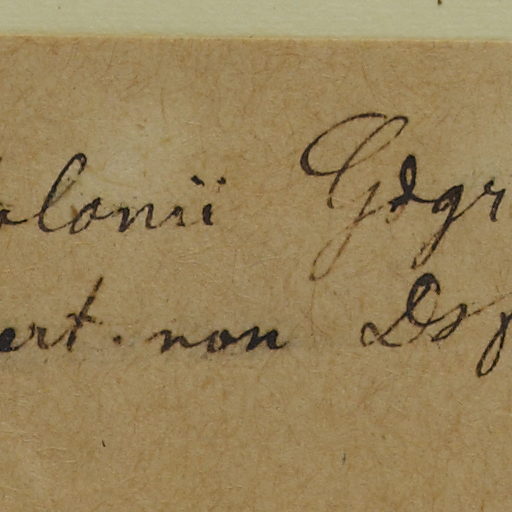 olonii Gdgr
ert. non Dsp